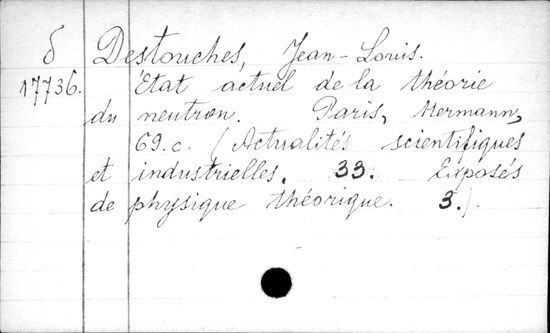 δ Destouches, Jean-Louis.
17736. Etat actuel de la théorie
du neutron. Paris, Hermann,
69.c. (Actualités scientifiques
et industrielles. 33. Exposés
de physique théorique. 3.).